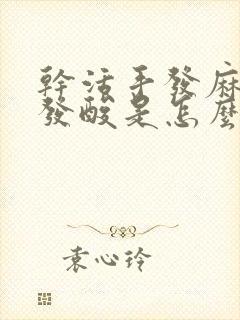 幹活手發麻
發酸是怎麼
袁心玲